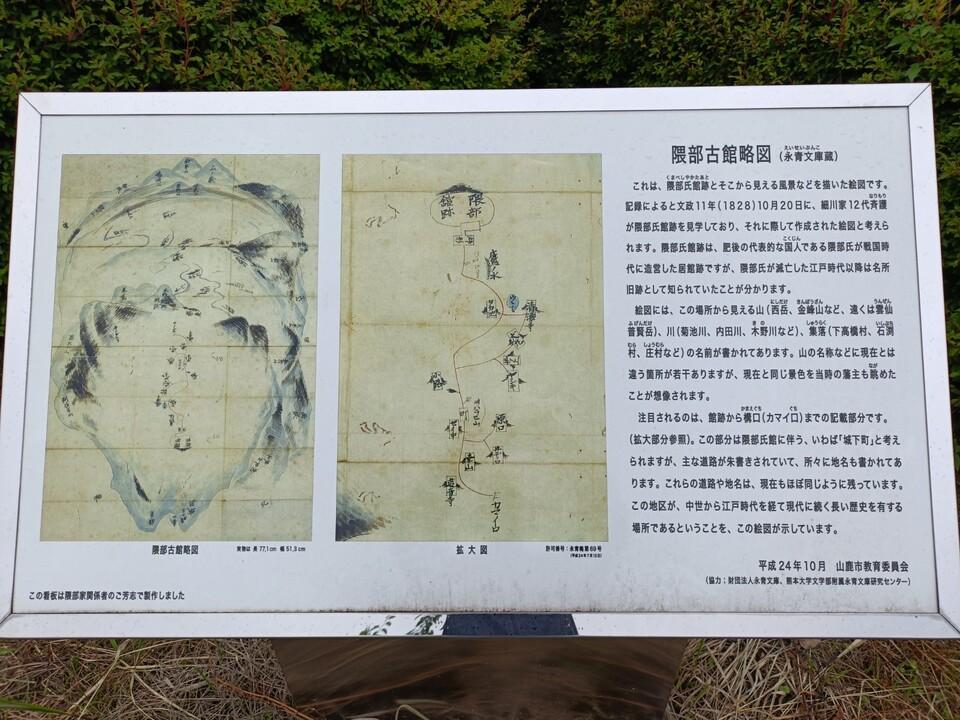 隈部古館略図(永青文庫蔵)
これは、隈部氏館跡とそこから見える風景などを描いた絵図です。
記録によると文政11年(1828)10月20日に、細川家12代斉護
が隈部氏館跡を見学しており、それに際して作成された絵図と考えら
れます。隈部氏館跡は、肥後の代表的な国人である隈部氏が戦国時
代に造営した居館跡ですが、隈部氏が滅亡した江戸時代以降は名所
旧跡として知られていたことが分かります。
絵図には、この場所から見える山(西岳、金峰山など、遠くは雲仙
普賢岳)、川(菊池川、内田川、木野川など)、集落(下高橋村、石渕
村、庄村など)の名前が書かれてあります。山の名称などに現在とは
違う箇所が若干ありますが、現在と同じ景色を当時の藩主も眺めた
ことが想像されます。
注目されるのは、館跡から構口(カマイ口)までの記載部分です。
(拡大部分参照)。この部分は隈部氏館に伴う、いわば「城下町」と考え
られますが、主な道路が朱書きされていて、所々に地名も書かれてあ
ります。これらの道路や地名は、現在もほぼ同じように残っています。
この地区が、中世から江戸時代を経て現代に続く長い歴史を有する
場所であるということを、この絵図が示しています。
平成24年10月 山鹿市教育委員会
(協力:財団法人永青文庫、熊本大学文学部附属永青文庫研究センター)
隈部古館略図
実物は 長 77.1cm 幅 51.3cm
隈部
舘跡
カマイ口
拡大図
許可番号:永青熊第69号
この看板は隈部家関係者のご芳志で製作しました